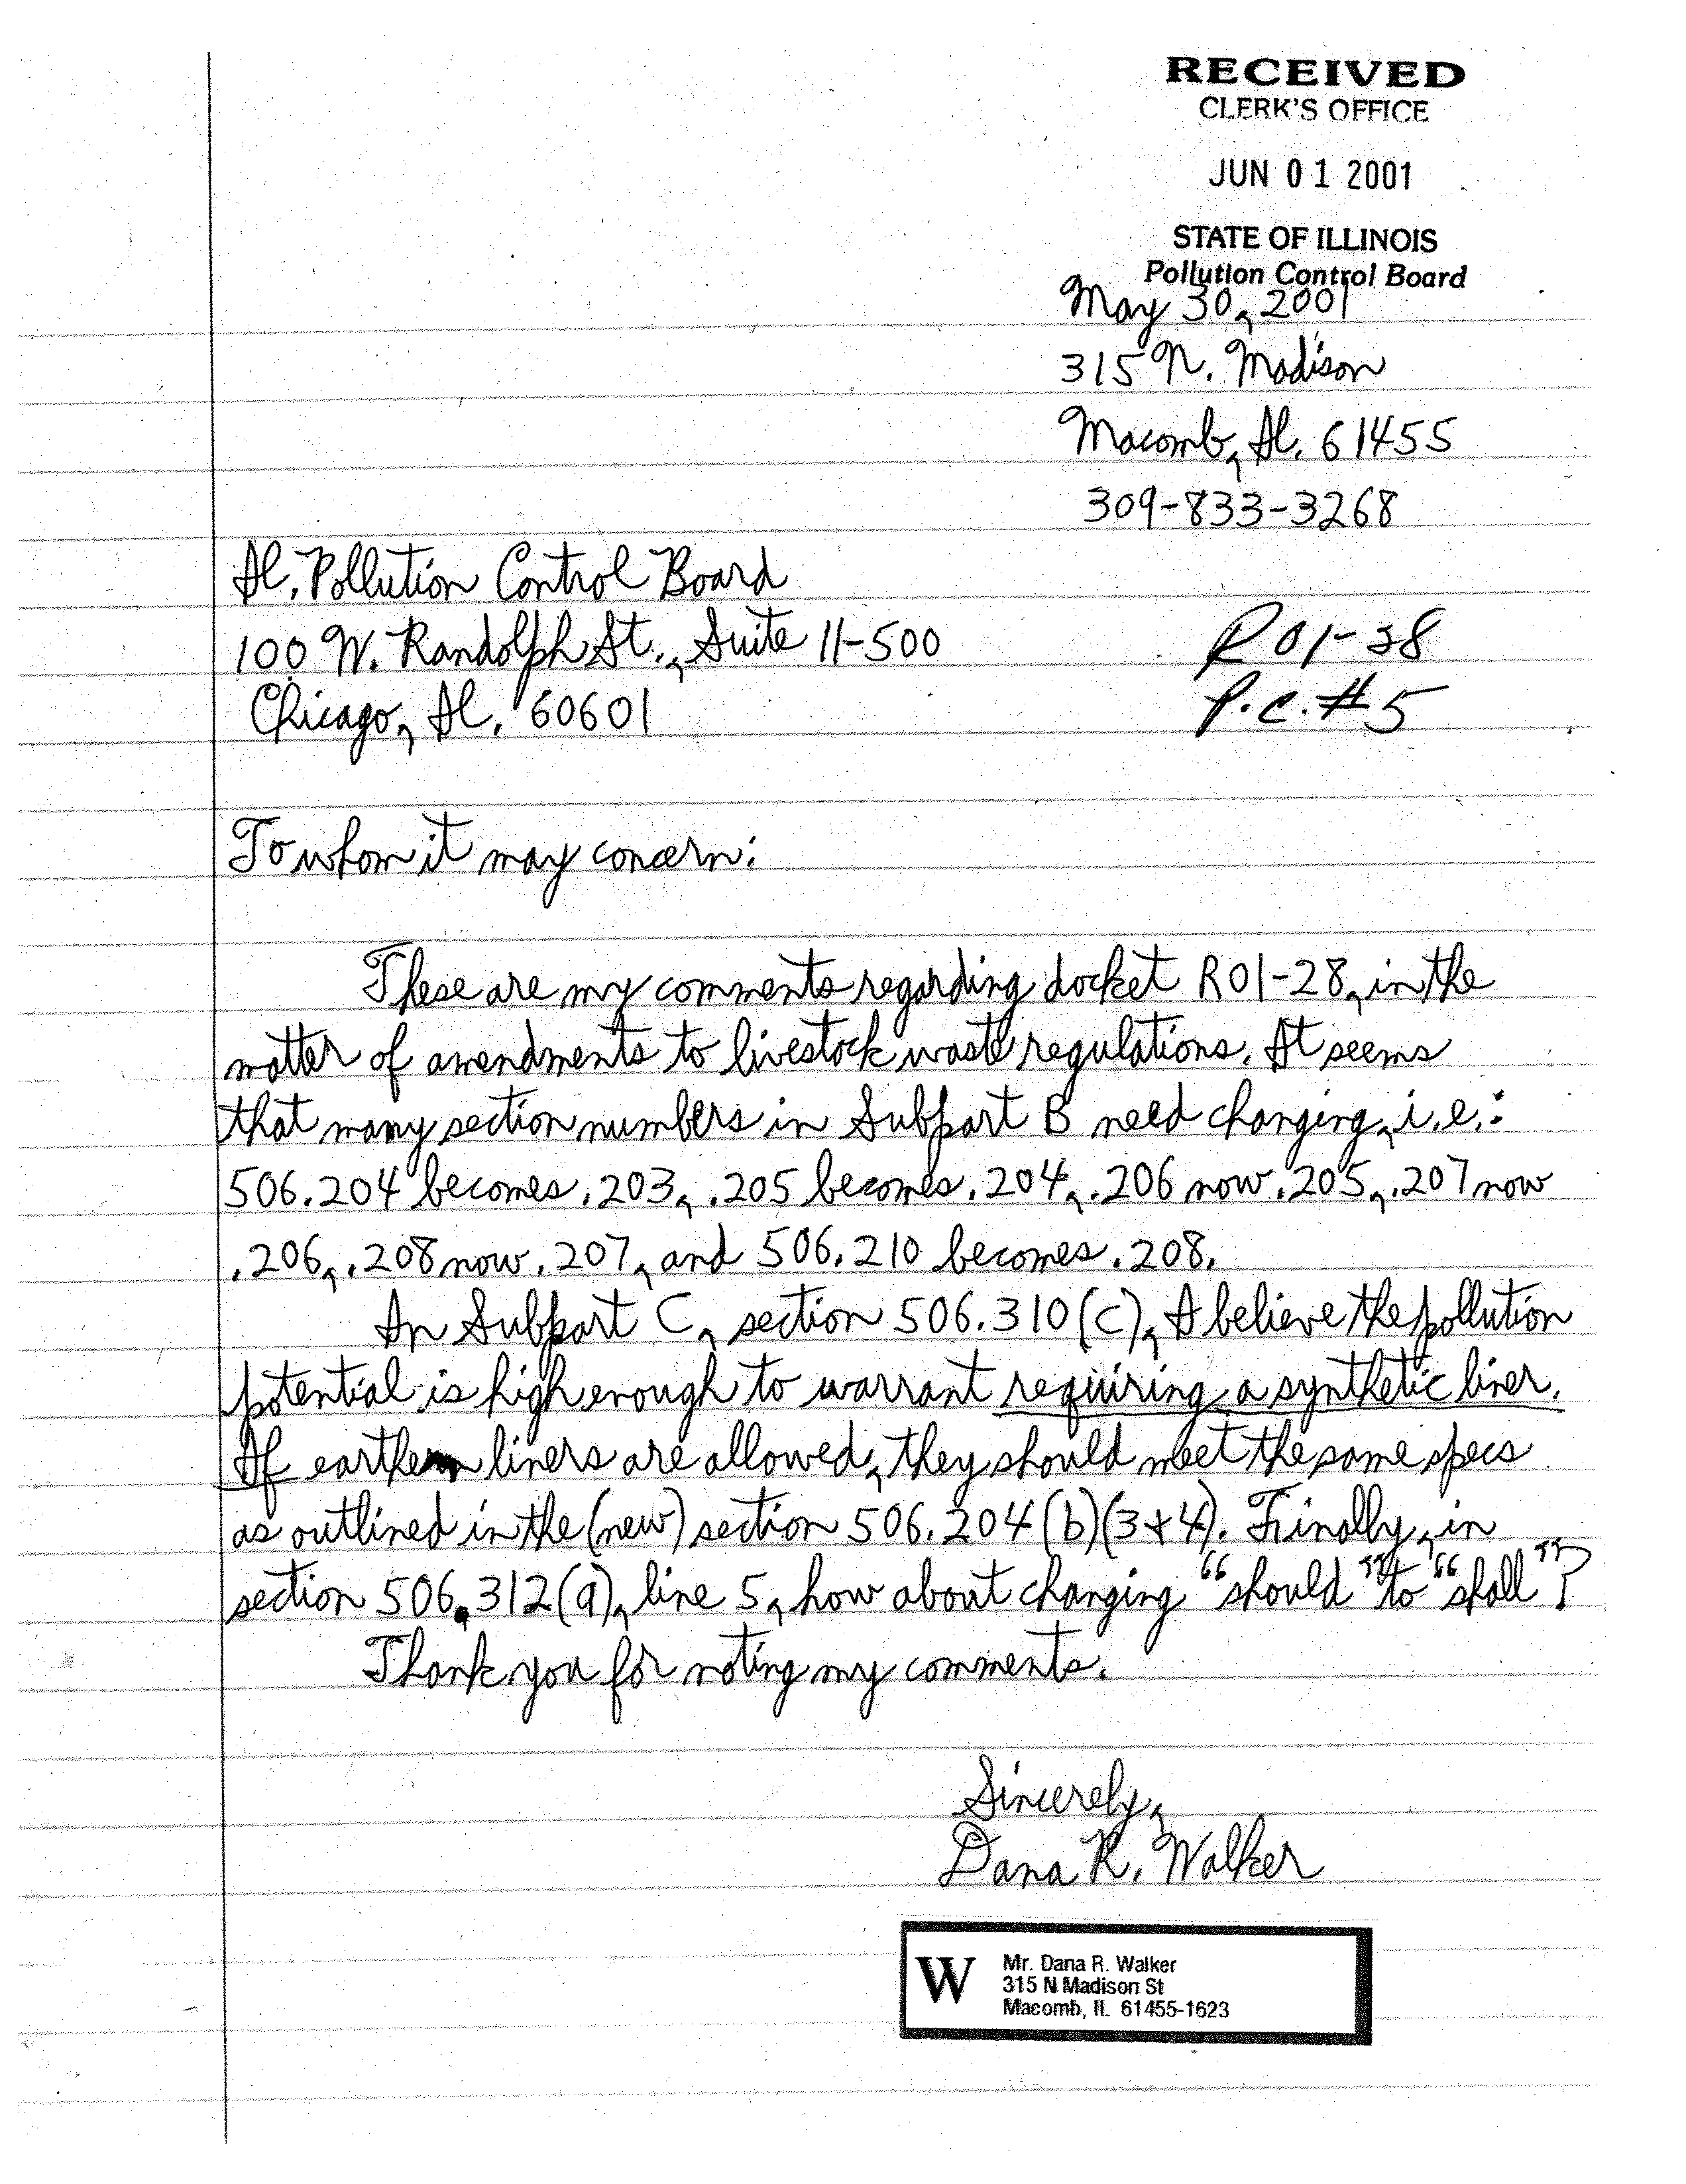 RECEIVED
CLERK'S OFFICE
JUN 01 2001
STATE OF ILLINOIS
Pollution Control Board
May 30, 2001
315 N. Madison
Macomb, Il. 61455
309-833-3268
Il. Pollution Control Board
100 W. Randolph St., Suite 11-500
Chicago, Il. 60601
R01-38
P.C. #5
To whom it may concern:
These are my comments regarding docket R01-28, in the
matter of amendments to livestock waste regulations. It seems
that many section numbers in Subpart B need changing, i.e.:
506.204 becomes .203, .205 becomes .204, .206 now .205, .207 now
.206, .208 now .207, and 506.210 becomes .208.
In Subpart C, section 506.310(c), I believe the pollution
potential is high enough to warrant requiring a synthetic liner.
If earthen liners are allowed, they should meet the same specs
as outlined in the (new) section 506.204(b)(3+4). Finally, in
section 506.312(a), line 5, how about changing "should" to "shall"?
Thank you for noting my comments.
Sincerely,
Dana R. Walker
W
Mr. Dana R. Walker
315 N Madison St
Macomb, IL 61455-1623